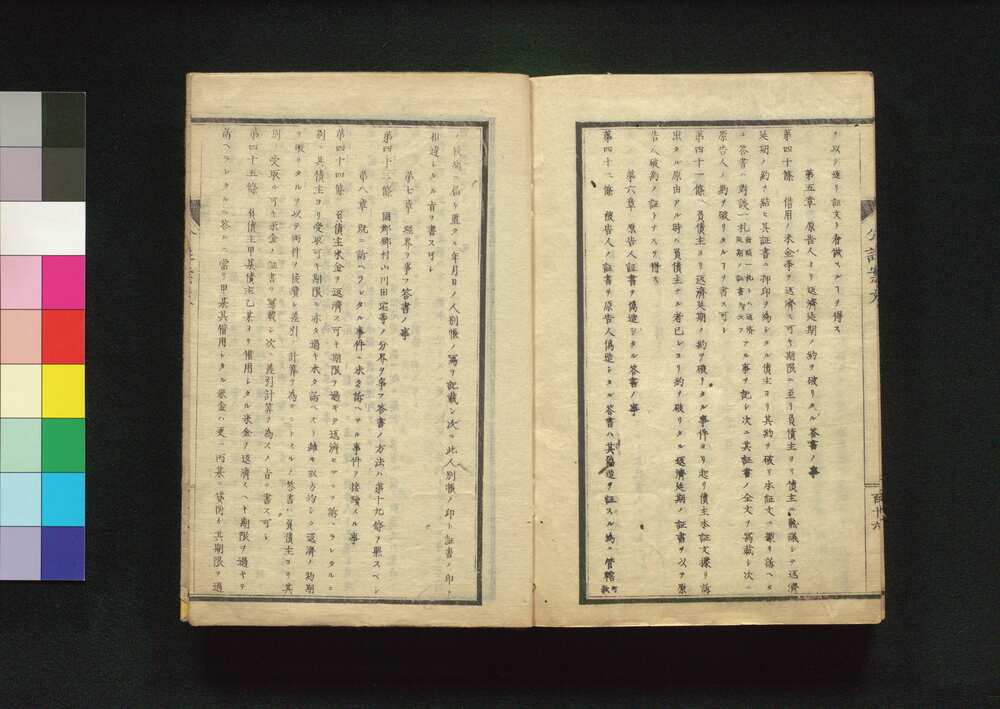 ヲ以テ通リ証文ト看做スヿヲ得ス
第五章 原告人ヨリ返済延期ノ約ヲ破リタル答書ノ事
第四十條 借用ノ米金等ヲ返済ス可キ期限ニ至リ負債主ヨリ債主ニ熟議シテ返済
延期ノ約ヲ結ヒ其証書ニ押印ヲ為シタル債主ヨリ其約ヲ破リ本証文ニ據リ訴ヘタ
ル答書ハ対談一札 アル事ヲ記シ次ニ其証書ノ全文ヲ写載シ次ニ
原告人ノ約ヲ破リタルヿヲ書ス可シ
第四十一條 負債主ヨリ返済延期ノ約ヲ破リタル事件ヨリ起リ債主本証文ニ據リ訴
出タル原由アル時ハ負債主タル者已レヨリ約ヲ破リタル返済延期ノ証書ヲ以テ原
告人破約ノ証トナスヿヲ得ス
第六章 原告人証書ヲ偽造シタル答書ノ事
第四十二條 被告人ノ証書ヲ原告人偽造シタル答書ハ其偽造ヲ証スル為ニ管轄
百廿六
ニ届ケ置タル年月日ノ人別帳ノ写ヲ記載シ次ニ此人別帳ノ印ト証書ノ印ト
相違シタル旨ヲ書ス可シ
第七章 経界ヲ争フ答書ノ事
第四十三條 國郡郷村山川田宅等ノ分界ヲ争フ答書ノ方法ハ第十九條ヲ照スベシ
第八章 既ニ訴ヘラレタル事件ニ未タ訴ヘサル事件ヲ接続スル事
第四十四條 負債主米金ヲ返済ス可キ期限ヲ過キ返済セスシテ訴ヘラレタルニ
別ニ其債主ヨリ受取可キ期限ニ未タ過キ未タ訴ヘスト雖モ双方約シタ返済ノ時期
ヲ破リタルヲ以テ両件ヲ接続シ差引ノ計算ヲ為サントスルノ答書ハ負債主ヨリ其
別ニ受取ル可キ米金ノ証書ヲ写載シ次ニ差引計算ヲ為スノ旨ヲ書ス可シ
第四十五條 負債主甲某債主乙某ヨリ借用シタル米金ヲ返済スヘキ期限ヲ過キテ
訴ヘラレタルニ答ルニ當リ甲某其借用シタル米金ハ更ニ丙某ニ貸附ケ其期限ヲ過